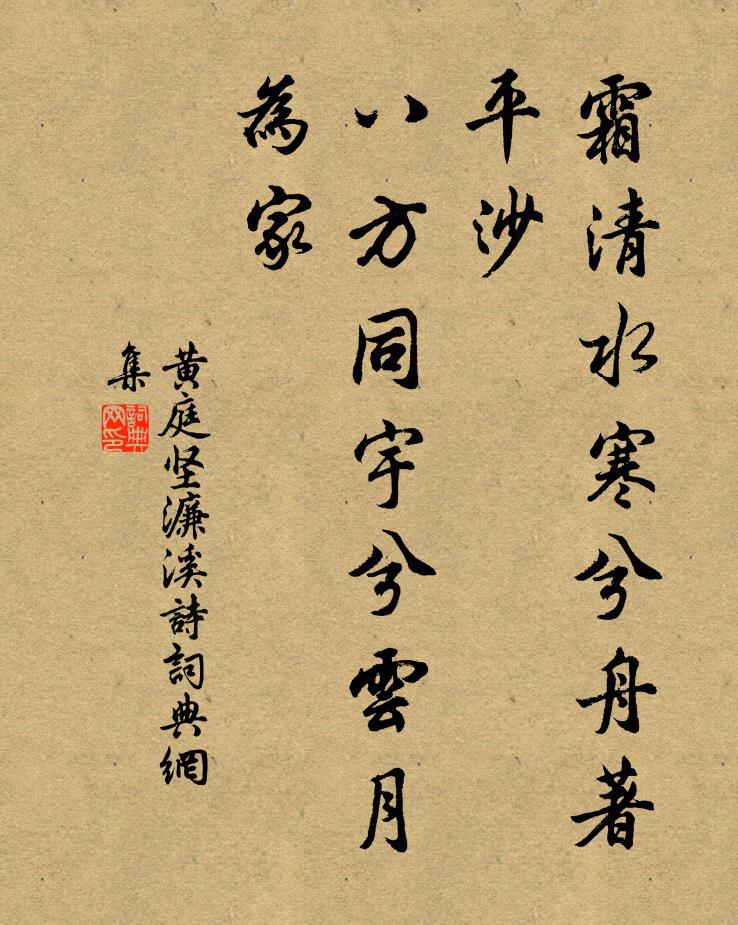 霜清水寒兮舟著
平沙
八方同宇兮雲月
為家
黄庭坚濂溪詩詞典網
集
詞典網印